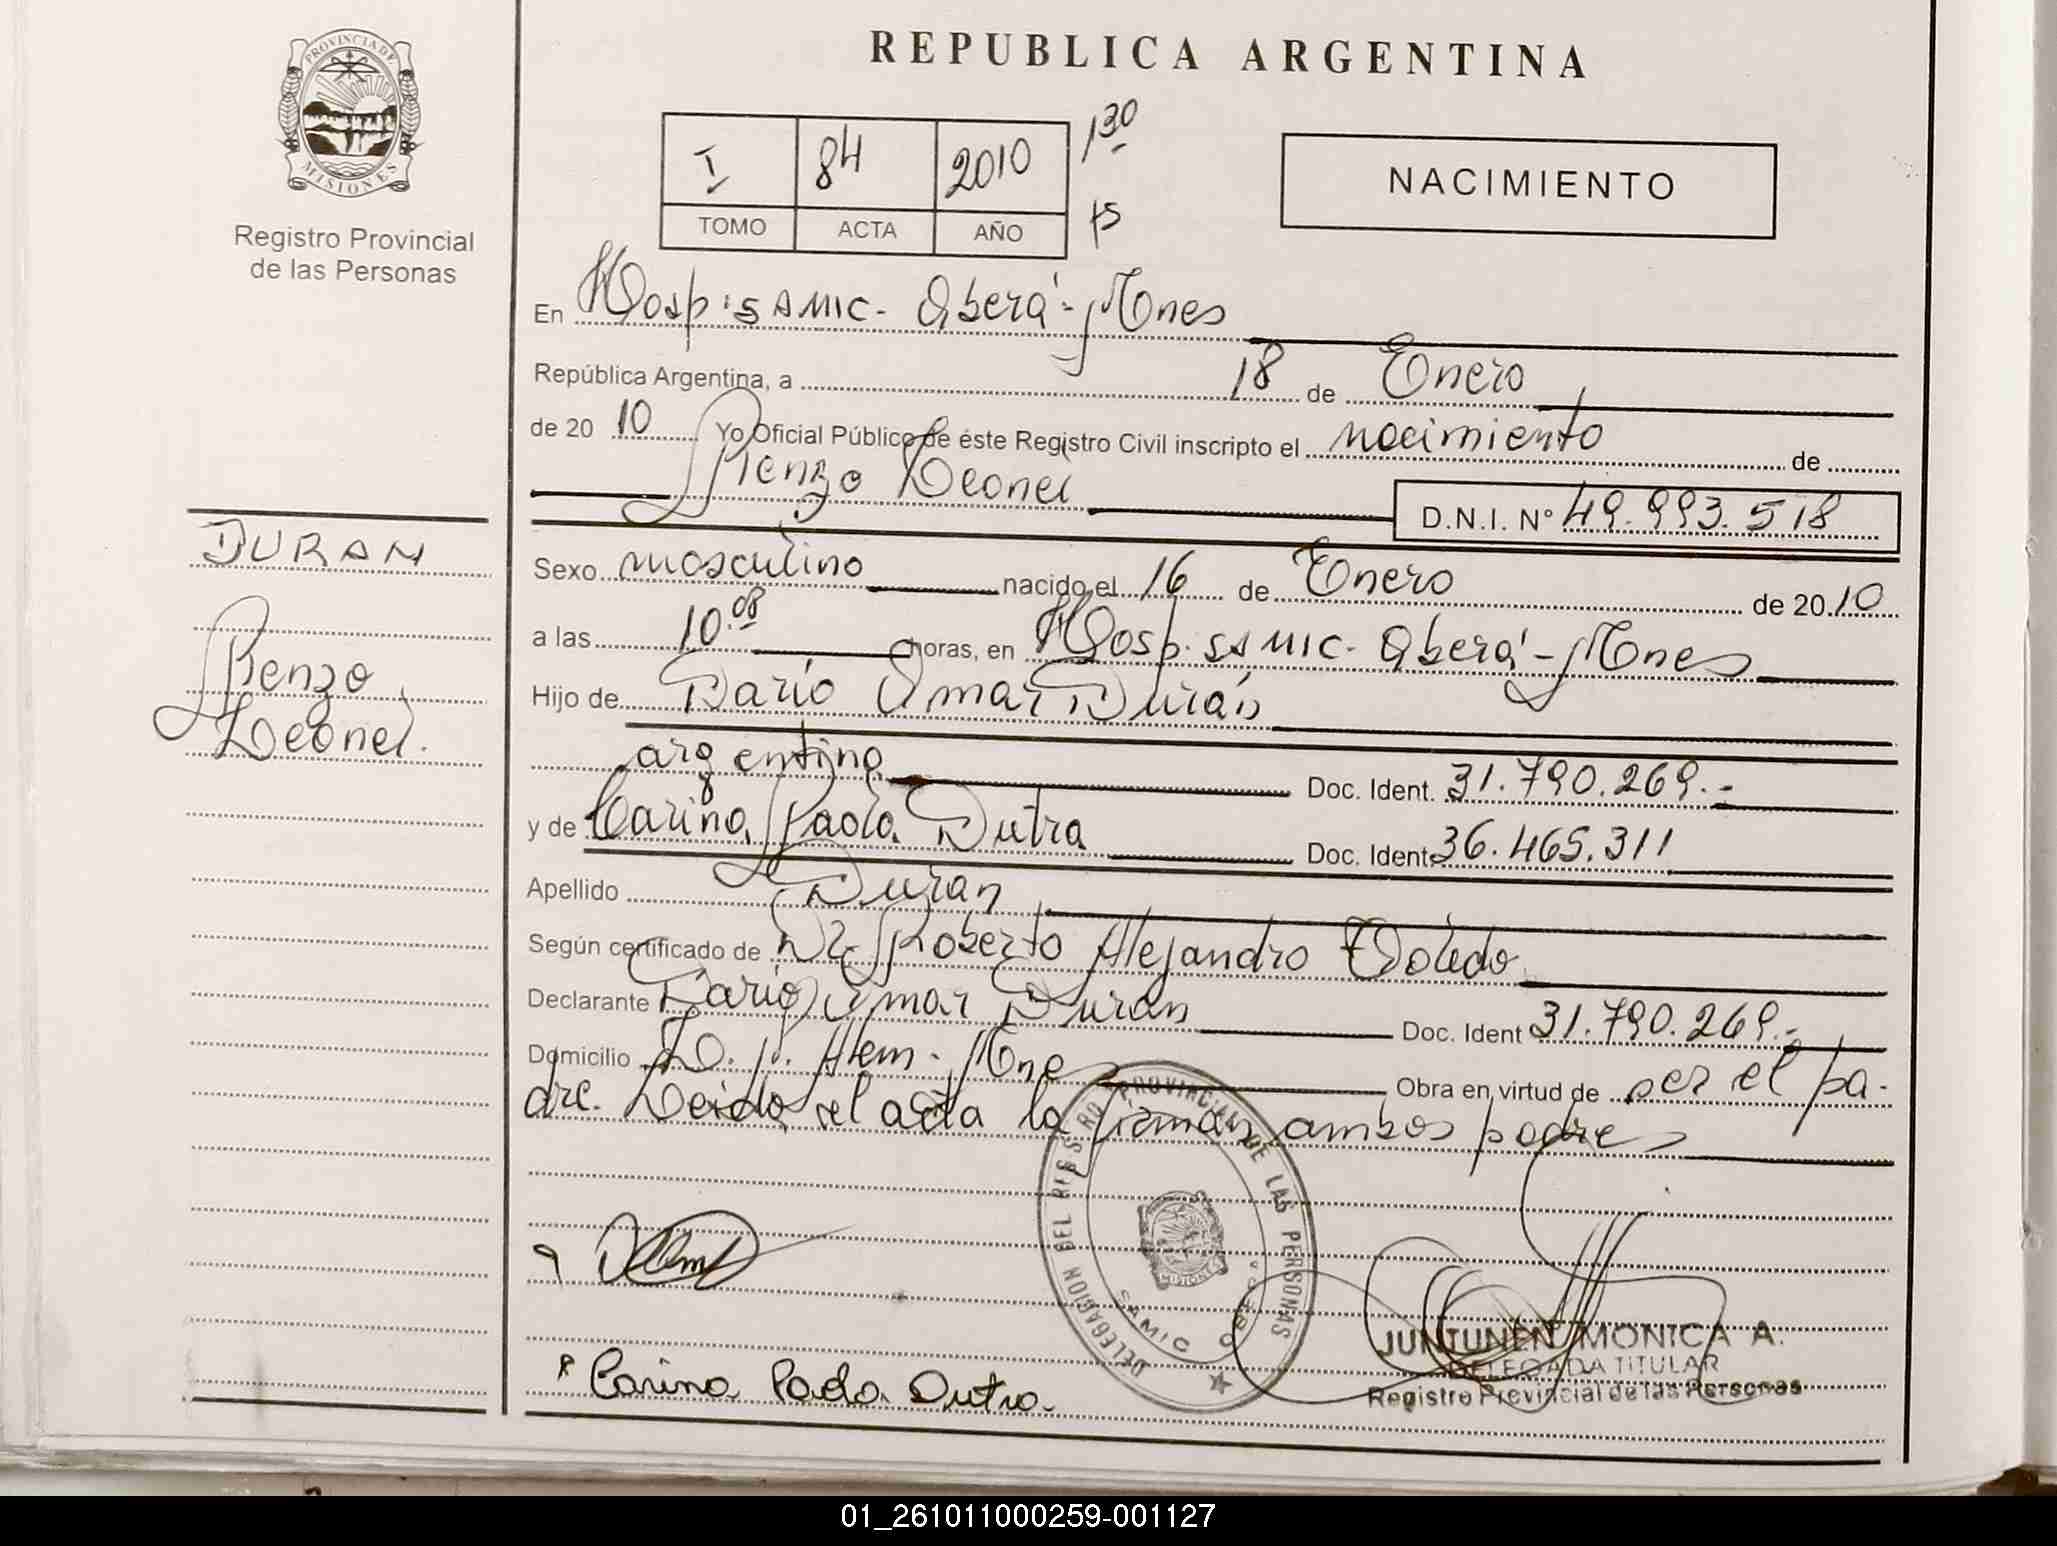 REPUBLICA ARGENTINA
PROVINCIA DE
MISIONES
Registro Provincial
de las Personas
I 84 2010 1 30
TOMO ACTA AÑO 15
NACIMIENTO
En Hosp. SAMIC - Oberá - Mnes
República Argentina, a 18 de Enero
de 20 10 Yo Oficial Público de éste Registro Civil inscripto el nacimiento de
Renzo Leonel D.N.I. N° 49.993.518
DURAN
Renzo
Leonel.
Sexo masculino nacido el 16 de Enero de 20 10
a las 10.08 horas, en Hosp. SAMIC - Oberá - Mnes
Hijo de Darío Omar Durán
argentino Doc. Ident. 31.790.269.-
y de Carina Paola Dutra Doc. Ident. 36.465.311
Apellido Duran
Según certificado de Dr Roberto Alejandro Toledo
Declarante Darío Omar Duran Doc. Ident 31.790.269.-
Domicilio L. N. Alem - Mnes Obra en virtud de ser el pa-
dre. Leida el acta la firman ambos padres
DELEGACION DEL REGISTRO PROVINCIAL DE LAS PERSONAS
MISIONES
SAMIC OBERA
Carina Paola Dutra.
JUNTUNEN MONICA A.
DELEGADA TITULAR
Registro Provincial de las Personas
01_261011000259-001127